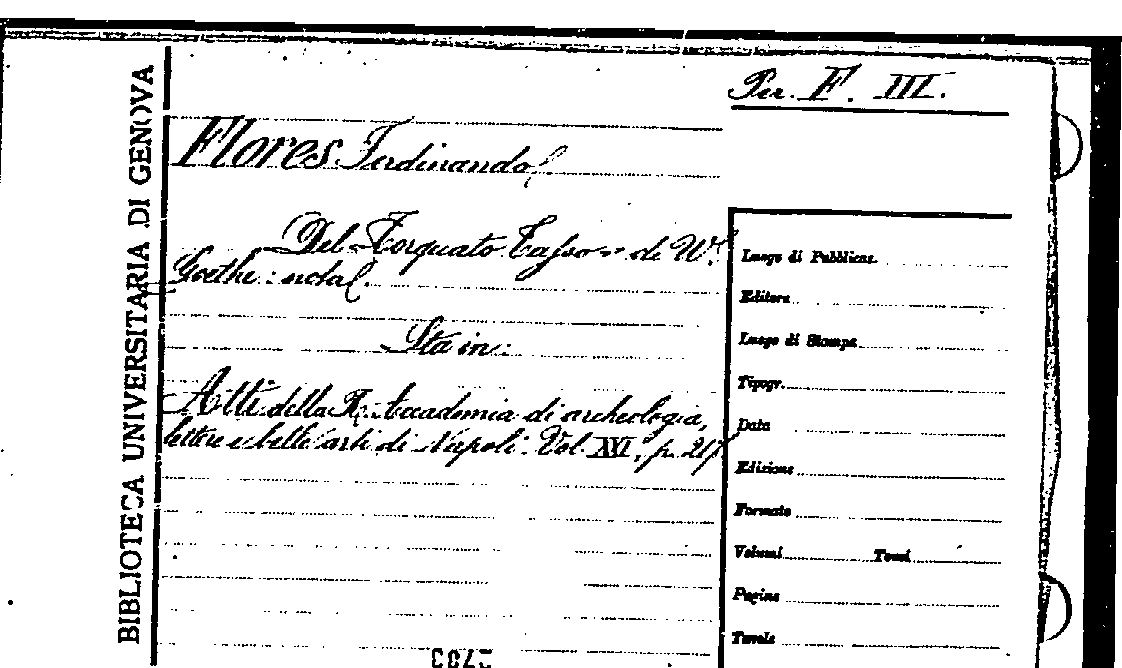 BIBLIOTECA UNIVERSITARIA DI GENOVA
Per. F. III.
Flores Ferdinando
Del Torquato Tasso di W.
Goethe: nota.
Sta in:
Atti della R. Accademia di archeologia,
lettere e belle arti di Napoli. Vol. XVI, p.
Luogo di Pubblicaz.
Editore
Luogo di Stampa
Tipogr.
Data
Edizione
Formato
Volumi Tomi
Pagine
Tavole